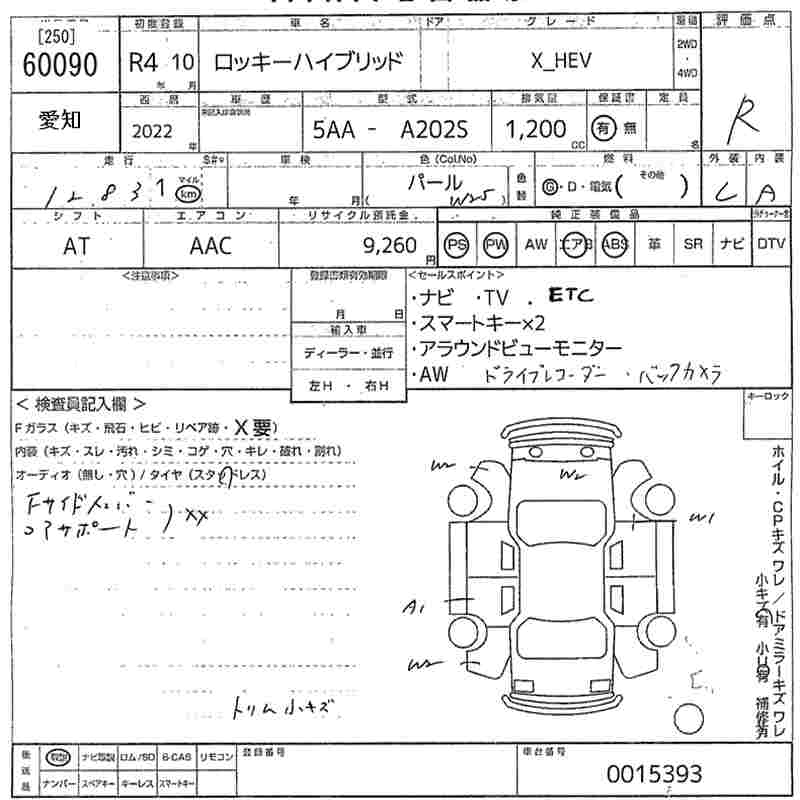 [250]
60090
初度登録
車名
ドア
グレード
駆動
評価点
R4 10
年 月
ロッキーハイブリッド
X_HEV
2WD
・
4WD
愛知
西暦
車歴
型式
排気量
保証書
定員
R
2022
年
5AA - A202S
1,200
CC
有 無
名
走行
車検
色(Col.No)
燃料
外装
内装
12831
マイル
km
年 月
パール
( W25 )
色替
G・D・電気( その他 )
C
A
シフト
エアコン
リサイクル預託金
純正装備品
AT
AAC
9,260
円
PS
PW
AW
エアB
ABS
革
SR
ナビ
DTV
<注意事項>
登録書類有効期限
月 日
輸入車
ディーラー・並行
左H ・ 右H
<セールスポイント>
・ナビ ・TV . ETC
・スマートキー×2
・アラウンドビューモニター
・AW ドライブレコーダー ・バックカメラ
< 検査員記入欄 >
キーロック
Fガラス (キズ・飛石・ヒビ・リペア跡・X要)
内装 (キズ・スレ・汚れ・シミ・コゲ・穴・キレ・破れ・割れ)
オーディオ (無し・穴) / タイヤ (スタッドレス)
Fサイドメンバー
コアサポート ) XX
W2
W2
W1
A1
W2
トリム小キズ
ホイル・CPキズ ワレ / ドアミラーキズ ワレ
小キズ有 小U有 補修有
後送品
取説
ナビ取説
ロム/SD
B-CAS
リモコン
ナンバー
スペアキー
キーレス
スマートキー
登録番号
車台番号
0015393